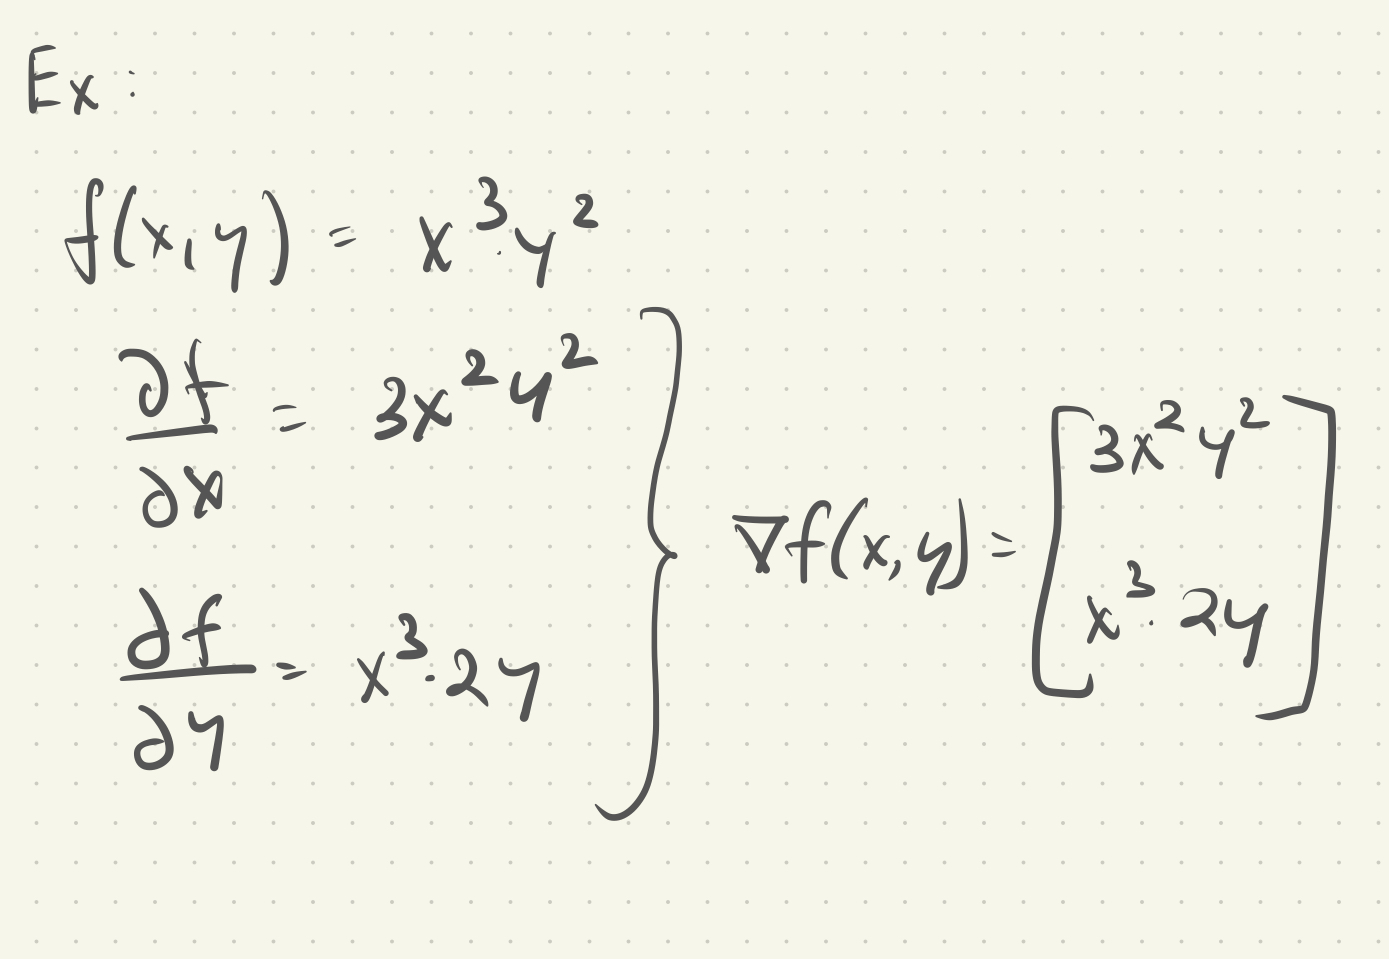 Ex:
f(x,y) = x³·y²
∂f/∂x = 3x²y²
∂f/∂y = x³·2y
∇f(x,y) = [3x²y²
x³·2y]